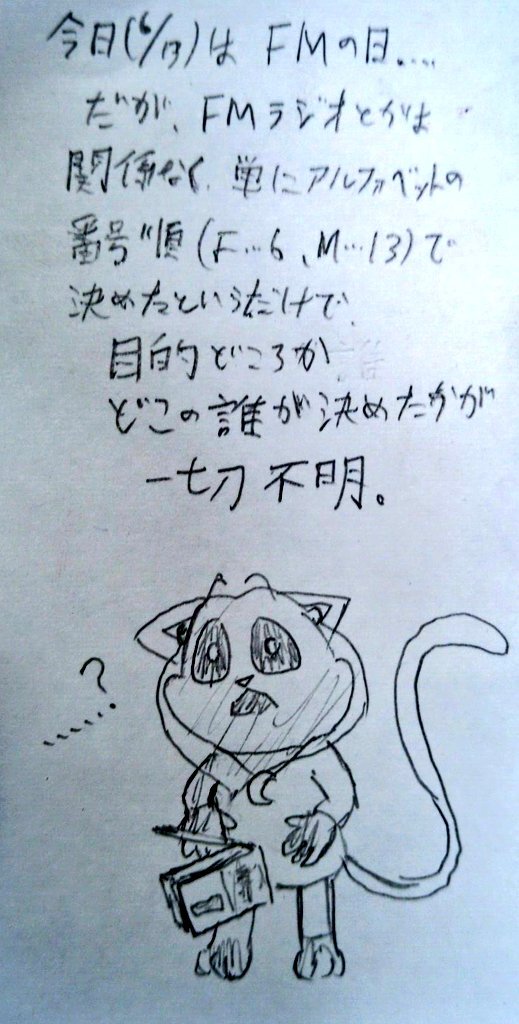 今日(6/13)は FMの日....
だが、FMラジオとかは
関係なく、単にアルファベットの
番号順(F…6、M…13)で
決めたというだけで、
目的どころか
どこの誰が決めたかが
一切不明。
?